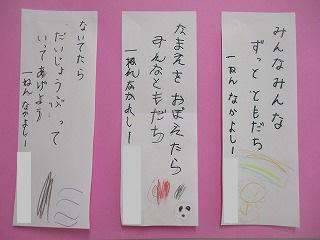 みんなみんな
ずっと ともだち
一ねん なかよしー
なまえを おぼえたら
みんなともだち
一ねんなかよしー
ないてたら
だいじょうぶって
いってあげよう
一ねん なかよしー